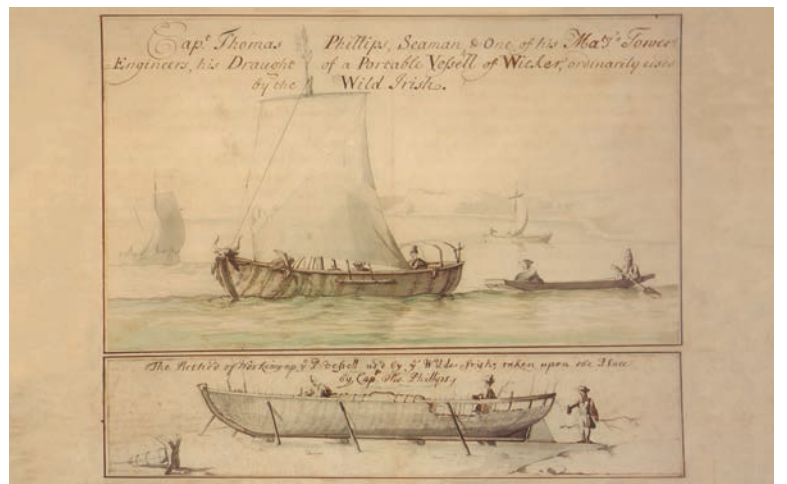 Capt. Thomas Phillips, Seaman, & One of his Maty's Tower
Engineers, his Draught of a Portable Veſsell of Wicker, ordinarily used
by the Wild Irish.
The Method of Working up ye Veſsell us'd by ye Wilde Irish, taken upon the Place
by Capt Tho Phillips